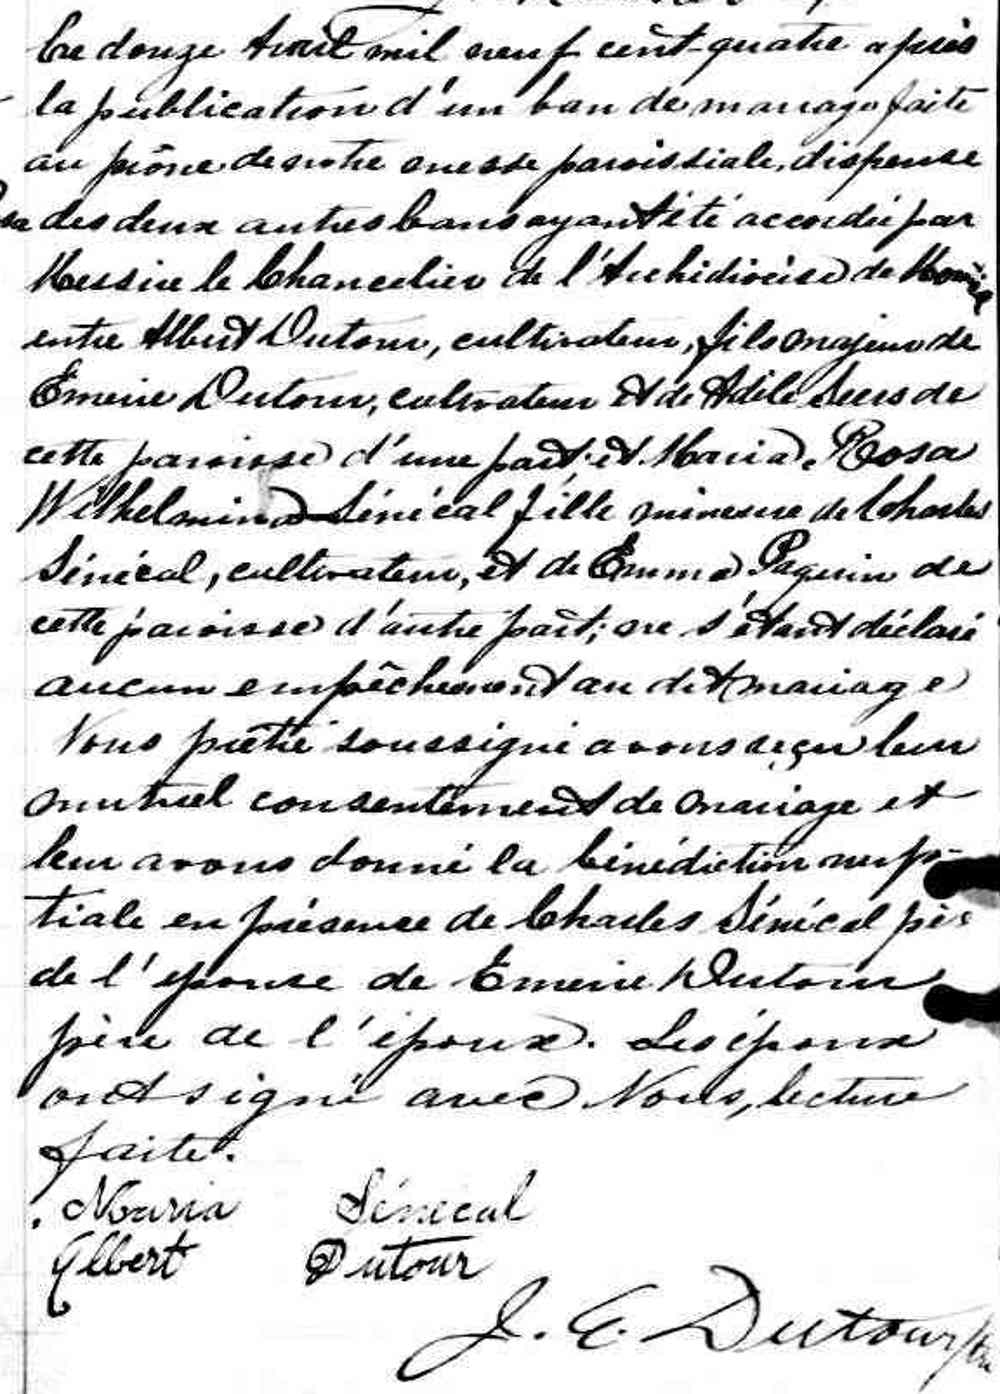 Le douze Avril mil neuf cent-quatre après
la publication d'un ban de mariage faite
au prône de notre messe paroissiale, dispense
des deux autres bans ayant été accordée par
Messire le Chancelier de l'Archidiocèse de
entre Albert Dutour, cultivateur, fils majeur de
Emerie Dutour, cultivateur et de Adèle de
cette paroisse d'une part et Maria, Rosa
Wilhelmina Sénécal fille mineure de Charles
Sénécal, cultivateur, et de Emma Paquin de
cette paroisse d'autre part; ne s'étant déclaré
aucun empêchement au dit mariage
Nous prêtre soussigné avons reçu leur
mutuel consentement de mariage et
leur avons donné la bénédiction nup-
tiale en présence de Charles Sénécal père
de l'épouse de Emerie Dutour
père de l'époux. Les époux
ont signé avec Nous, lecture
faite.
Maria Sénécal
Albert Dutour
J. E. Dutour, ptre